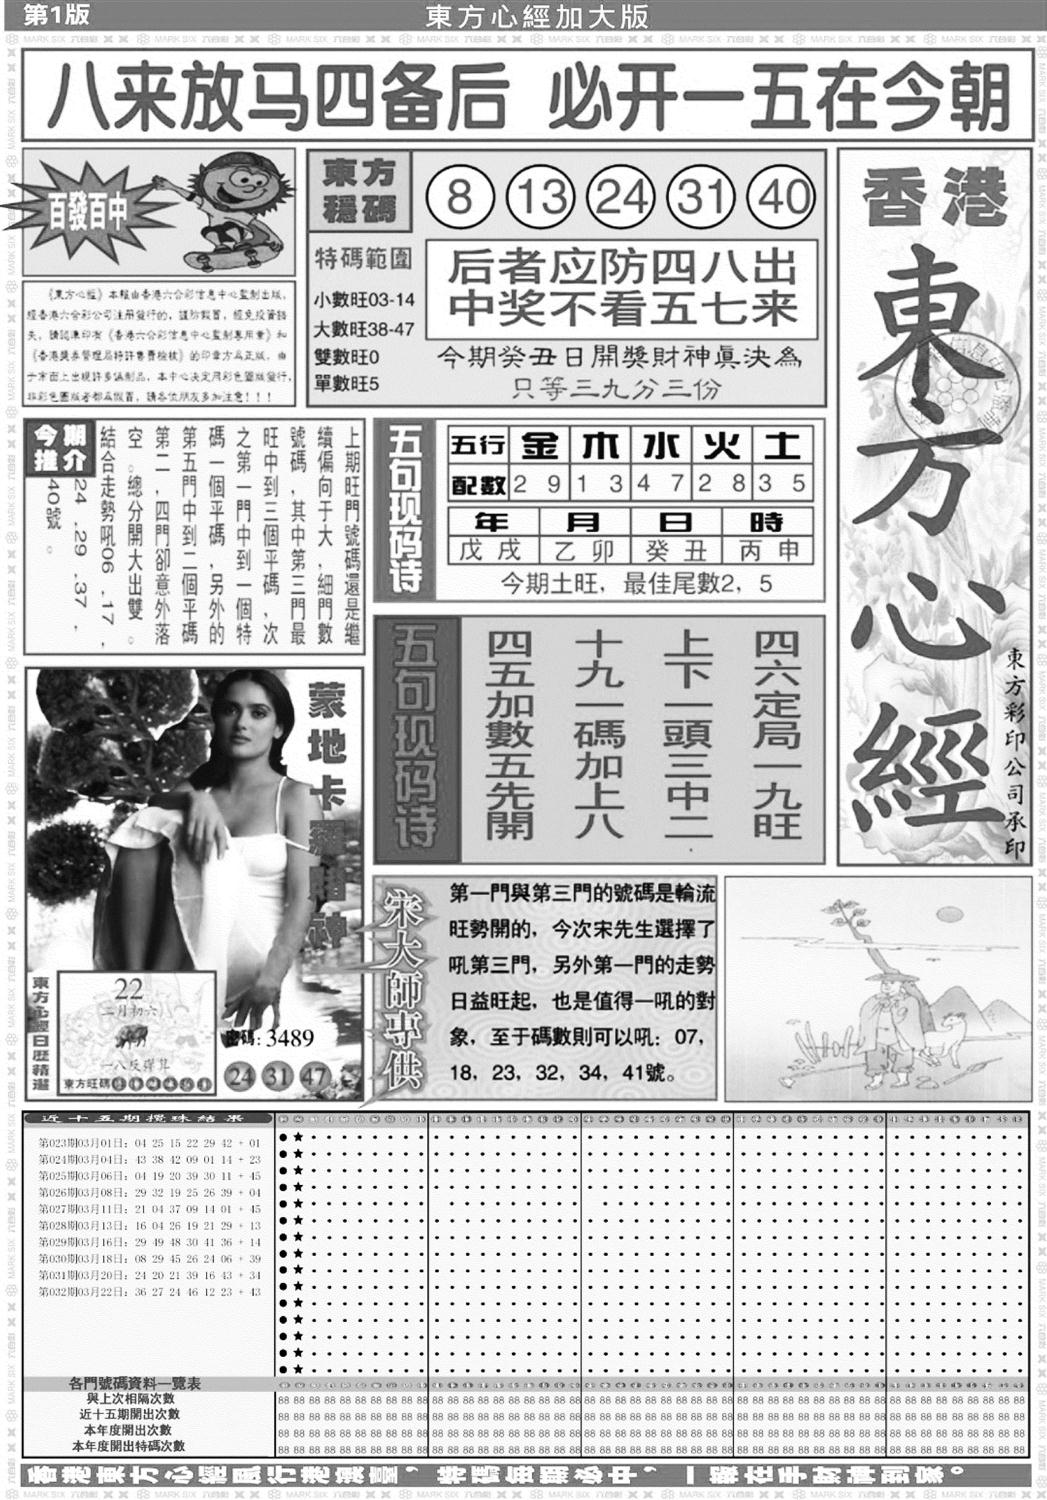 第1版
東方心經加大版
八来放马四备后 必开一五在今朝
百發百中
《東方心經》本報由香港六合彩信息中心監制出版,
經香港六合彩公司注册發行的,謹防假冒,經免投資損
失,請認準印有《香港六合彩信息中心監制專用章》和
《香港獎券管理局特許售賣檢核》的印章方爲正版,由
于市面上出現許多僞制品,本中心决定用彩色圖版發行,
非彩色圖版者都爲假冒,請各位朋友多加注意!!!
東方
穩碼
8 13 24 31 40
特碼範圍
小數旺03-14
大數旺38-47
雙數旺0
單數旺5
后者应防四八出
中奖不看五七来
今期癸丑日開獎財神真決為
只等三九分三份
香港
東方心經
東方彩印公司承印
今期
推介
上期旺門號碼還是繼
續偏向于大,細門數
號碼,其中第三門最
旺中到三個平碼,次
之第一門中到一個特
碼一個平碼,另外的
第五門中到二個平碼
第二,四門卻意外落
空。總分開大出雙。
結合走勢吼06.17,
24.29.37,
40號。
五句现码诗
五行 金 木 水 火 土
配數 2 9 1 3 4 7 2 8 3 5
年 月 日 時
戊戌 乙卯 癸丑 丙申
今期土旺,最佳尾數2,5
五句现码诗
四六定局一九旺
上下一頭三中二
十九一碼加上八
四五加數五先開
蒙地卡羅賭神
東方心經日歷精選
22
二月初六
一八反彈算
東方旺碼
密碼:3489
24 31 47
宋大師專供
第一門與第三門的號碼是輪流
旺勢開的,今次宋先生選擇了
吼第三門,另外第一門的走勢
日益旺起,也是值得一吼的對
象,至于碼數則可以吼:07,
18,23,32,34,41號。
近十五期攪珠結果
第023期03月01日: 04 25 15 22 29 42 + 01
第024期03月04日: 43 38 42 09 01 14 + 23
第025期03月06日: 04 19 20 39 30 11 + 45
第026期03月08日: 29 32 19 25 26 39 + 04
第027期03月11日: 21 04 37 09 14 01 + 45
第028期03月13日: 16 04 26 19 21 29 + 13
第029期03月16日: 29 49 48 30 41 36 + 14
第030期03月18日: 08 29 45 26 24 06 + 39
第031期03月20日: 24 20 21 39 16 43 + 34
第032期03月22日: 36 27 24 46 12 23 + 43
各門號碼資料一覽表
與上次相隔次數
近十五期開出次數
本年度開出次數
本年度開出特碼次數